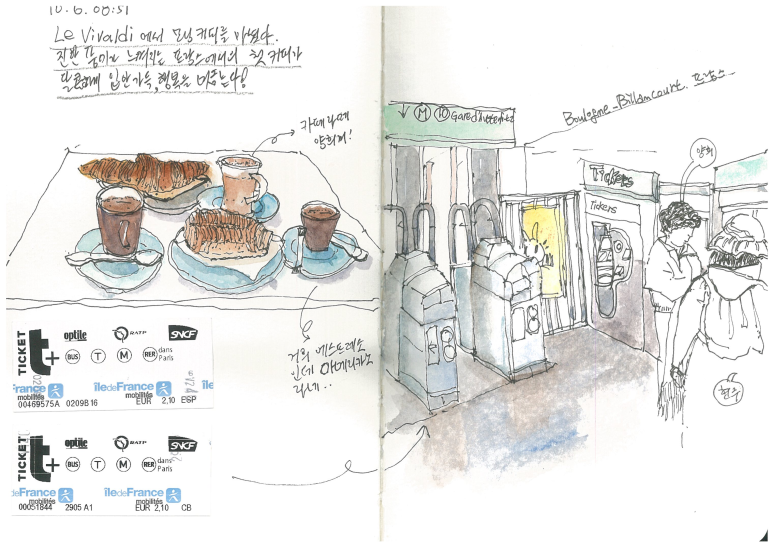 10.6. 08:51
Le Vivaldi 에서 모닝커피를 마셨다.
진한 풍미가 느껴지는 프랑스에서의 첫 커피가
달콤하게 입안가득, 행복을 머금는다!
카페라떼
양희꺼!
거의 에스프레소
인데 아메리카노
라네..
TICKET
t+
optile
RATP
SNCF
BUS
T
M
RER
dans
Paris
îledeFrance
mobilités
00469575A 0209B16 EUR 2,10 ESP
TICKET
t+
optile
RATP
SNCF
BUS
T
M
RER
dans
Paris
îledeFrance
mobilités
00051844 2905 A1 EUR 2,10 CB
M 10 Gare d'Austerlitz
Boulogne-Billancourt, 프랑스
Tickets
Tickets
양희
현우